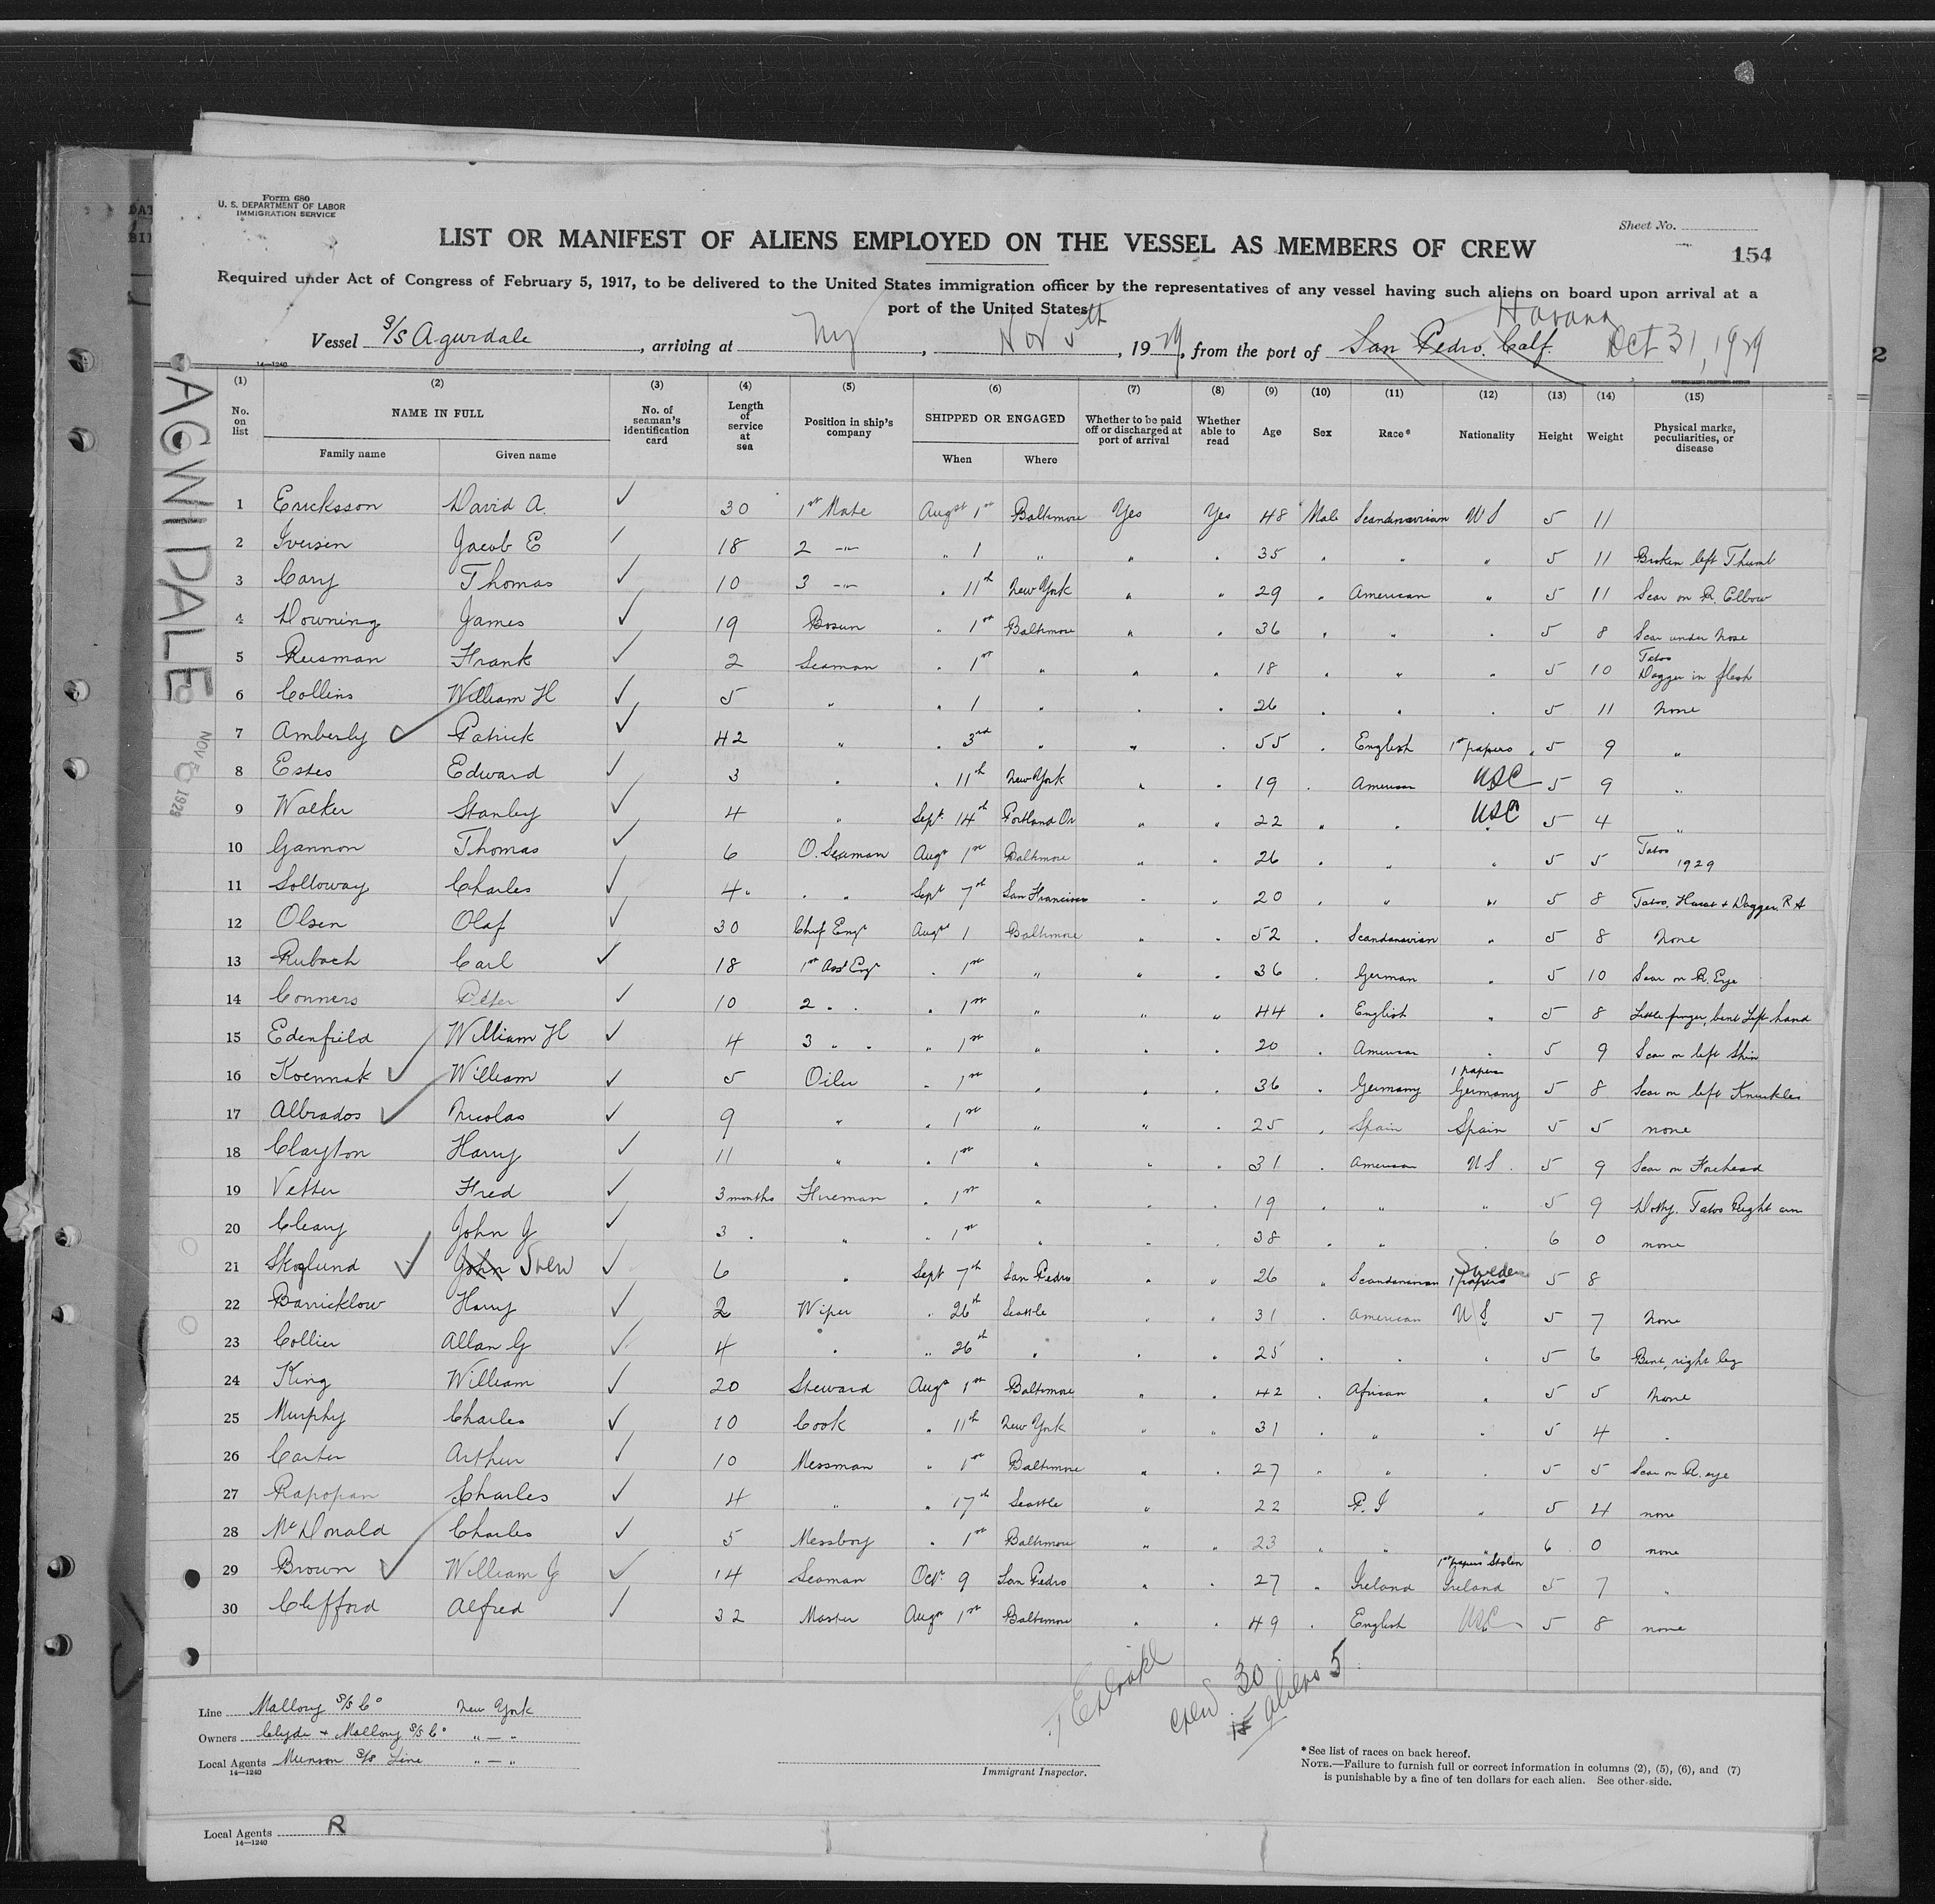 Form 680
U. S. DEPARTMENT OF LABOR
IMMIGRATION SERVICE
Sheet No.
LIST OR MANIFEST OF ALIENS EMPLOYED ON THE VESSEL AS MEMBERS OF CREW
154
Required under Act of Congress of February 5, 1917, to be delivered to the United States immigration officer by the representatives of any vessel having such aliens on board upon arrival at a
port of the United States
Vessel S/S Agwidale, arriving at Ny, Nov 5th, 1929, from the port of San Pedro. Calf. Havana Oct 31, 1929
14—1240
AGWIDALE
NOV 5 1929
(1) (2) (3) (4) (5) (6) (7) (8) (9) (10) (11) (12) (13) (14) (15)
No. on list NAME IN FULL Family name Given name No. of seaman's identification card Length of service at sea Position in ship's company SHIPPED OR ENGAGED When Where Whether to be paid off or discharged at port of arrival Whether able to read Age Sex Race* Nationality Height Weight Physical marks, peculiarities, or disease
1 Ericksson David A. ✓ 30 1st Mate Augst 1st Baltimore Yes Yes 48 Male Scandinavian US 5 11
2 Iversen Jacob E ✓ 18 2 -"- " 1 " " " 35 " " " 5 11 Broken left Thumb
3 Cary Thomas ✓ 10 3 -"- " 11th New York " " 29 " American " 5 11 Scar on R. Elbow
4 Downing James ✓ 19 Bosun " 1st Baltimore " " 36 " " " 5 8 Scar under nose
5 Rusman Frank ✓ 2 Seaman " 1st " " " 18 " " " 5 10 Tatoo Dagger in flesh
6 Collins William H ✓ 5 " " 1 " " " 26 " " " 5 11 None
7 Amberly ✓ Patrick ✓ 42 " " 3rd " " " 55 " English 1st papers 5 9 "
8 Estes Edward ✓ 3 " " 11th New York " " 19 " American USC 5 9 "
9 Walker Stanley ✓ 4 " Sept 14th Portland Or " " 22 " " USC 5 4 "
10 Gannon Thomas ✓ 6 O. Seaman Augst 1st Baltimore " " 26 " " " 5 5 Tatoo 1929
11 Solloway Charles ✓ 4 " " Sept 7th San Francisco " " 20 " " " 5 8 Tatoo, Heart & Dagger. R A
12 Olsen Olaf ✓ 30 Chief Engr Augst 1 Baltimore " " 52 " Scandanavian " 5 8 None
13 Rubach Carl ✓ 18 1st Asst Engr " 1st " " " 36 " German " 5 10 Scar on R. Eye
14 Conners Peter ✓ 10 2 " " " 1st " " " 44 " English " 5 8 Little finger, bent Left hand
15 Edenfield William H ✓ 4 3 " " " 1st " " " 20 " American " 5 9 Scar on left Shin
16 Koennak ✓ William ✓ 5 Oiler " 1st " " " 36 " Germany 1 papers Germany 5 8 Scar on left Knuckles
17 Albrados ✓ Nicolas ✓ 9 " " 1st " " " 25 " Spain Spain 5 5 none
18 Clayton Harry ✓ 11 " " 1st " " " 31 " American US 5 9 Scar on Forehead
19 Vetter Fred ✓ 3 months Fireman " 1st " " " 19 " " " 5 9 Dotty. Tatoo Right arm
20 Cleary John J ✓ 3 " " " 1st " " " 38 " " " 6 0 none
21 Skoglund ✓ John Sven ✓ 6 " Sept 7th San Pedro " " 26 " Scandanavian Sweden 1 papers 5 8
22 Barricklow Harry ✓ 2 Wiper " 26th Seattle " " 31 " American US 5 7 None
23 Collier Allan G ✓ 4 " " 26th " " " 25 " " " 5 6 Bent, right leg
24 King William ✓ 20 Steward Augst 1st Baltimore " " 42 " African " 5 5 None
25 Murphy Charles ✓ 10 Cook " 11th New York " " 31 " " " 5 4 "
26 Carter Arthur ✓ 10 Messman " 1st Baltimore " " 27 " " " 5 5 Scar on R. eye
27 Rapopan Charles ✓ 4 " " 17th Seattle " 22 P. I " 5 4 none
28 McDonald Charles ✓ 5 Messboy " 1st Baltimore " " 23 " " " 6 0 none
29 Brown ✓ William J ✓ 14 Seaman Oct. 9 San Pedro " " 27 " Ireland 1st papers Stolen Ireland 5 7 "
30 Clifford Alfred ✓ 32 Master Augst 1st Baltimore " " 49 " English USC 5 8 none
crew 30
aliens 5
Line Mallory S/S Co New York
Owners Clyde & Mallory S/S Co " — "
Local Agents Munson S/S Line " — "
14—1240
Immigrant Inspector.
*See list of races on back hereof.
NOTE.—Failure to furnish full or correct information in columns (2), (5), (6), and (7)
is punishable by a fine of ten dollars for each alien. See other side.
Local Agents R
14—1240